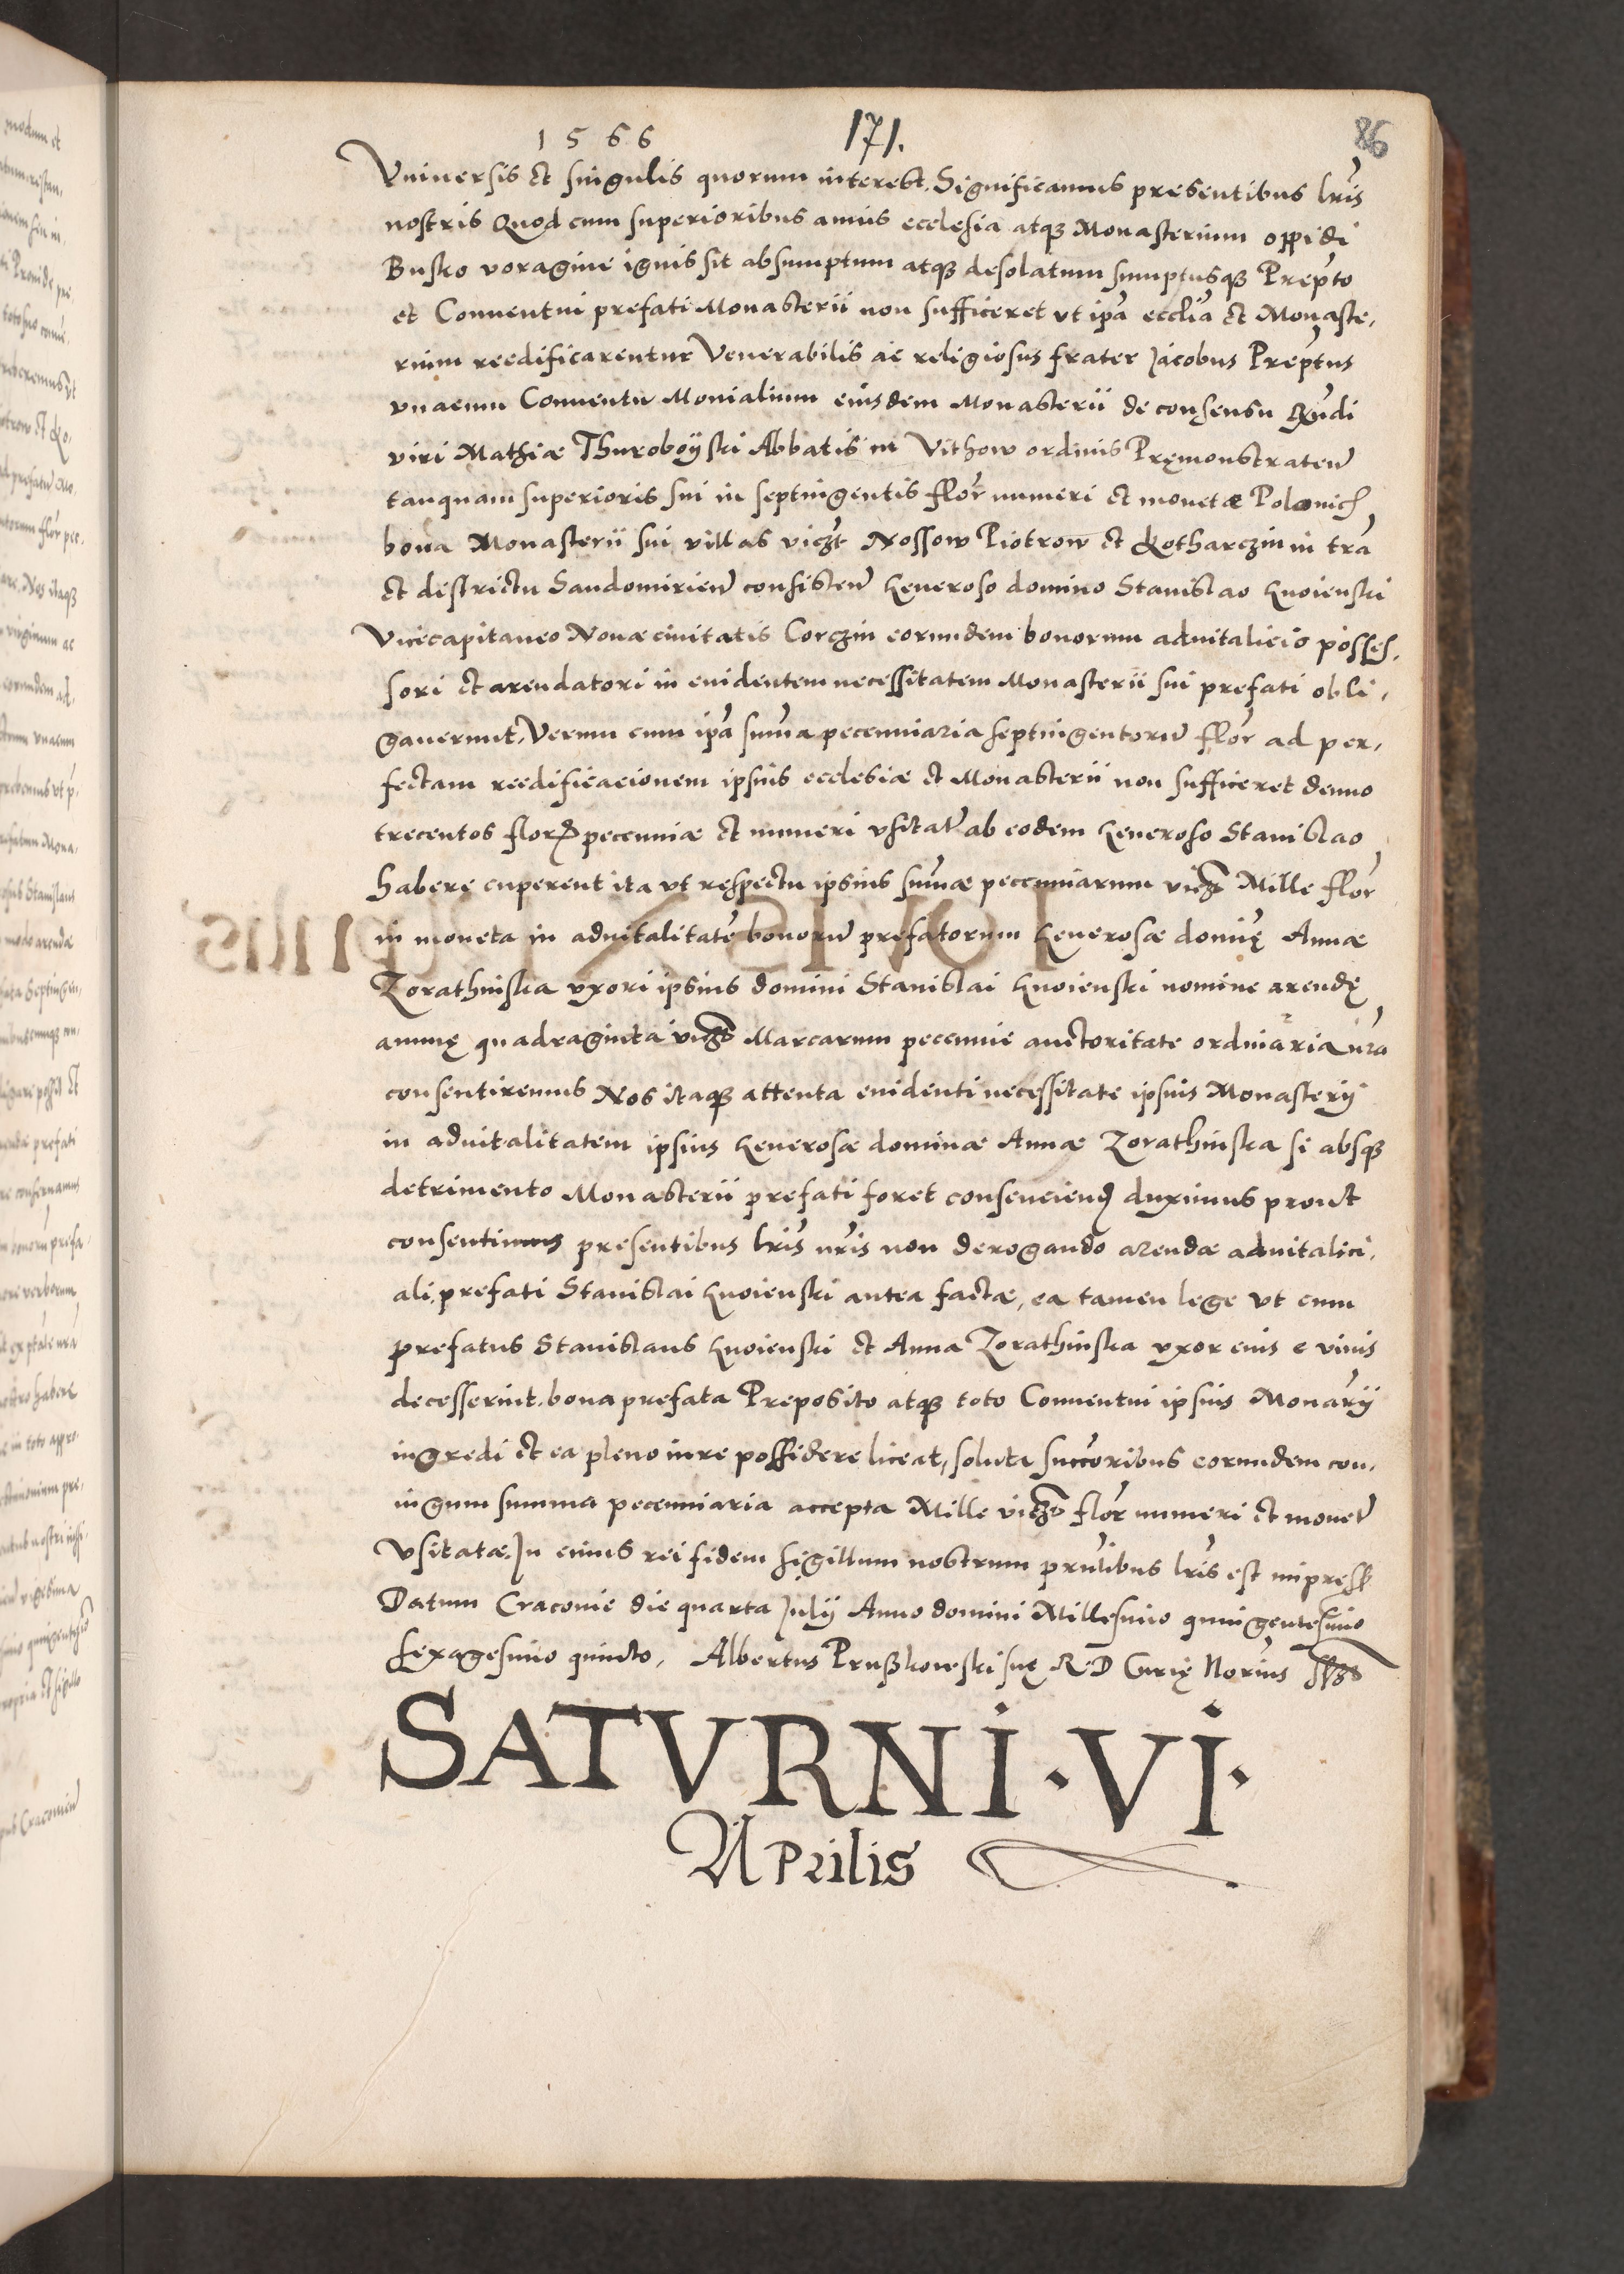 1566 171. 86
Vniuersis et singulis quorum interest. Significamus presentibus lris
nostris Quod cum superioribus annis ecclesia atqz Monasterium oppidi
Busko voragine ignis sit absumptum atqz desolatum sumptusqz Prepto
et Conuentui prefati Monasterii non sufficeret vt ipa ecclia et Monaste,
rium reedificarentur Venerabilis ac religiosus frater Jacobus Preptus
vnacum Conuentu Monialium eiusdem Monasterii de consensu Rndi
viri Mathiæ Thuroboyski Abbatis in Vithow ordinis Pręmonstraten
tanquam superioris sui in septingentis flor numeri et monetæ Polonich
bona Monasterii sui villas viczt Nossow Piotrow et Kotharczin in tra
et districtu Sandomirien consisten Generoso domino Stanislao Gnoienski
Vicecapitaneo Nouæ ciuitatis Corczin eorundem bonorum aduitalicio posses,
sori et arendatori in euidentem necessitatem Monasterii sui prefati obli,
gauerunt, Verum cum ipa suma pecunniaria septingentorum flor ad per,
fectam reedificacionem ipsius ecclesiæ et Monasterii non sufficeret denuo
trecentos flor pecunniæ et numeri vsitat ab eodem Generoso Stanislao
habere cuperent ita vt respectu ipsius sumæ pecunniarum viczt Mille flor
in moneta in aduitalitate bonorum prefatorum Generosæ domię Annæ
Zorathinska vxori ipsius domini Stanislai Gnoienski nomine arendę
annuę quadraginta viczt Marcarum pecunnie auctoritate ordinaria nra
consentiremus Nos itaqz attenta euidenti necessitate ipsius Monasterij
in aduitalitatem ipsius Generosæ dominæ Annæ Zorathinska si absqz
detrimento Monasterii prefati foret conscenciend duximus prout
consentimus presentibus lris nris non derogando arendæ aduitalici,
ali, prefati Stanislai Gnoienski antea factæ, ea tamen lege vt cum
prefatus Stanislaus Gnoienski et Anna Zorathinska vxor eius e viuis
decesserint, bona prefata Preposito atqz toto Conuentui ipsius Monarij
ingredi et ea pleno iure possidere liceat, soluta succoribus eorundem con,
iugum summa pecunniaria accepta Mille viczt flor numeri et monet
Vsitatæ. In cuius rei fidem sigillum nostrum prntibus lris est impress
Datum Craconie die quarta Julij Anno domini Millesimo quingentesimo
sexagesimo quincto, Albertus Prußkowski suę R D Curię Norius
SATVRNI · VI ·
Aprilis